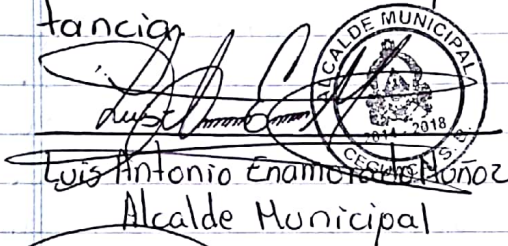 tancia.
ALCALDE MUNICIPAL
2014 - 2018
Luis Antonio Enamorado Muñoz
Alcalde Municipal